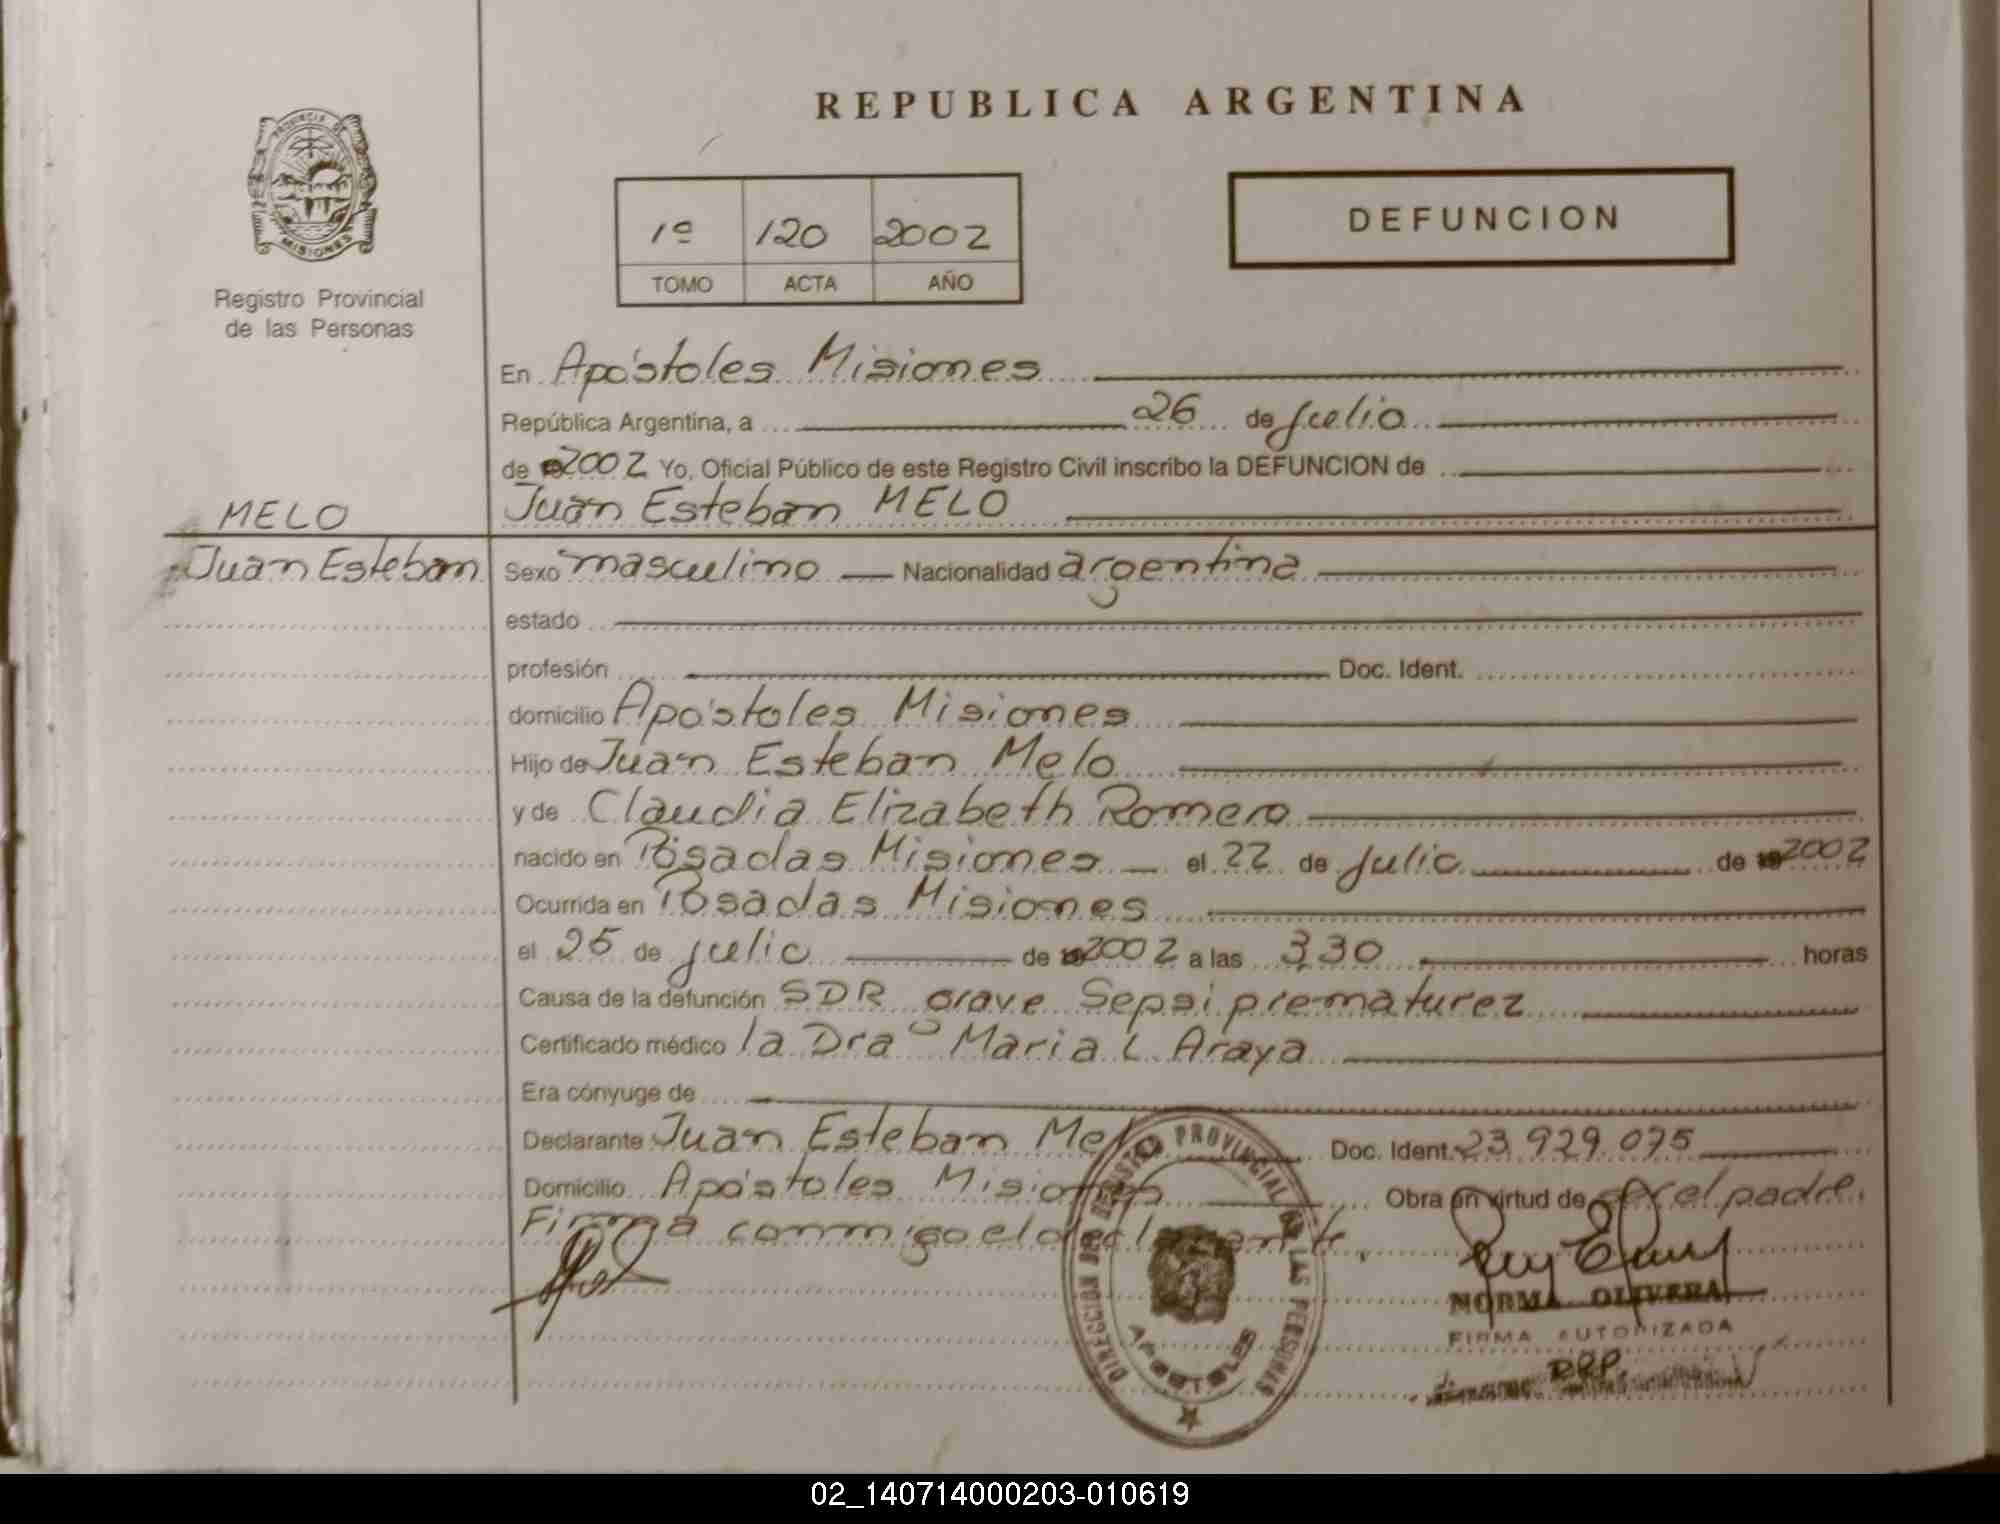 REPUBLICA ARGENTINA
PROVINCIA DE
MISIONES
Registro Provincial
de las Personas
1º 120 2002
TOMO ACTA AÑO
DEFUNCION
En Apóstoles Misiones
República Argentina, a 26 de Julio
de 2002 Yo, Oficial Público de este Registro Civil inscribo la DEFUNCION de
MELO
Juan Esteban
Juan Esteban MELO
Sexo masculino Nacionalidad argentina
estado
profesión Doc. Ident.
domicilio Apóstoles Misiones
Hijo de Juan Esteban Melo
y de Claudia Elizabeth Romero
nacido en Posadas Misiones el 22 de Julio de 2002
Ocurrida en Posadas Misiones
el 25 de Julio de 2002 a las 3,30 horas
Causa de la defunción SDR grave Sepsi prematurez
Certificado médico la Dra Maria L Araya
Era cónyuge de
Declarante Juan Esteban Melo Doc. Ident. 23.929.075
Domicilio Apóstoles Misiones Obra en virtud de ser el padre.
Firma conmigo el declarante.
DIRECCION DEL REGISTRO PROVINCIAL DE LAS PERSONAS
APOSTOLES
NORMA OLIVERA
FIRMA AUTORIZADA
02_140714000203-010619